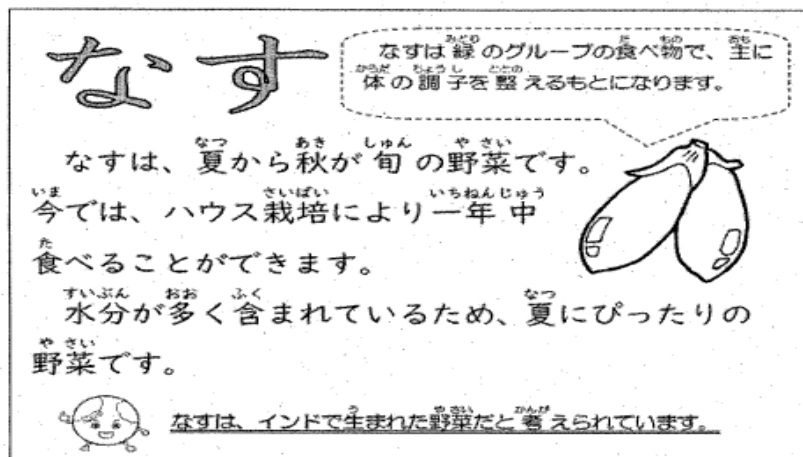 なす
なすは緑のグループの食べ物で、主に
体の調子を整えるもとになります。
なすは、夏から秋が旬の野菜です。
今では、ハウス栽培により一年中
食べることができます。
水分が多く含まれているため、夏にぴったりの
野菜です。
なすは、インドで生まれた野菜だと考えられています。